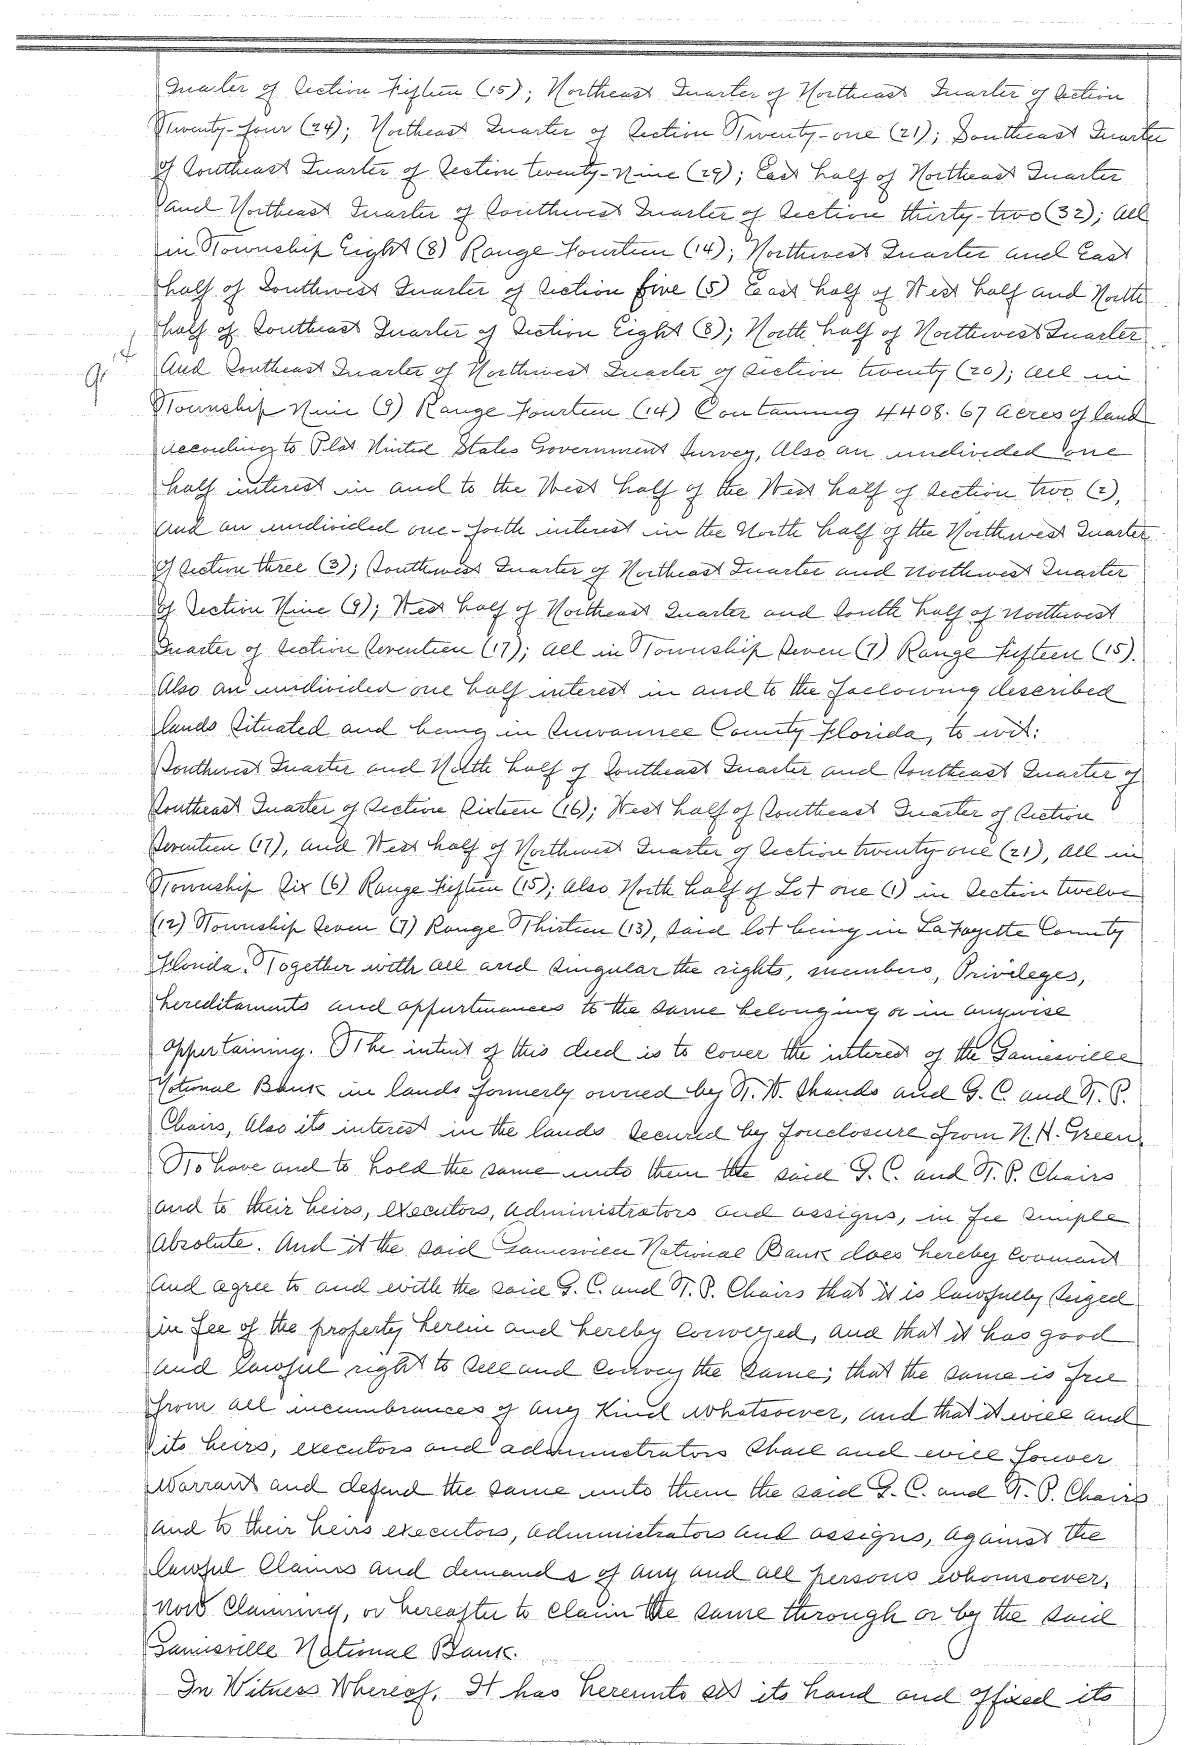 Quarter of Section Fifteen (15); Northeast Quarter of Northeast Quarter of Section
Twenty-four (24); Northeast Quarter of Section Twenty-one (21); Southeast Quarter
of Southeast Quarter of Section twenty-Nine (29); East half of Northeast Quarter
and Northeast Quarter of Southwest Quarter of Section thirty-two (32); all
in Township Eight (8) Range Fourteen (14); Northwest Quarter and East
half of Southwest Quarter of Section five (5) East half of West half and North
half of Southeast Quarter of Section Eight (8); North half of Northwest Quarter
And Southeast Quarter of Northwest Quarter of Section twenty (20); all in
Township Nine (9) Range Fourteen (14) Containing 4408.67 acres of land
according to Plat United States Government Survey, Also an undivided one
half interest in and to the West half of the West half of Section two (2),
and an undivided one-forth interest in the North half of the Northwest Quarter
of Section three (3); Southwest Quarter of Northeast Quarter and Northwest Quarter
of Section Nine (9); West half of Northeast Quarter and South half of Northwest
Quarter of Section Seventeen (17); all in Township Seven (7) Range Fifteen (15).
Also an undivided one half interest in and to the following described
lands situated and being in Suwannee County Florida, to wit:
Southwest Quarter and North half of Southeast Quarter and Southeast Quarter of
Southeast Quarter of Section Sixteen (16); West half of Southeast Quarter of Section
Seventeen (17), and West half of Northwest Quarter of Section twenty one (21), all in
Township Six (6) Range Fifteen (15); also North half of Lot one (1) in Section twelve
(12) Township Seven (7) Range Thirteen (13), said lot being in LaFayette County
Florida. Together with all and singular the rights, members, Privileges,
hereditaments and appurtenances to the same belonging or in anywise
appertaining. The intent of this deed is to cover the interest of the Gainesville
National Bank in lands formerly owned by T. W. Shands and G. C. and T. P.
Chairs, Also its interest in the lands secured by foreclosure from N. H. Green.
To have and to hold the same unto them the said G. C. and T. P. Chairs
and to their heirs, executors, administrators and assigns, in fee simple
absolute. And it the said Gainesville National Bank does hereby covenant
and agree to and with the said G. C. and T. P. Chairs that it is lawfully seized
in fee of the property herein and hereby conveyed, and that it has good
and lawful right to sell and convey the same; that the same is free
from all incumbrances of any kind whatsoever, and that it will and
its heirs, executors and administrators shall and will forever
warrant and defend the same unto them the said G. C. and T. P. Chairs
and to their heirs executors, administrators and assigns, against the
lawful claims and demands of any and all persons whomsoever,
now claiming, or hereafter to claim the same through or by the said
Gainesville National Bank.
In Witness Whereof, It has hereunto set its hand and affixed its